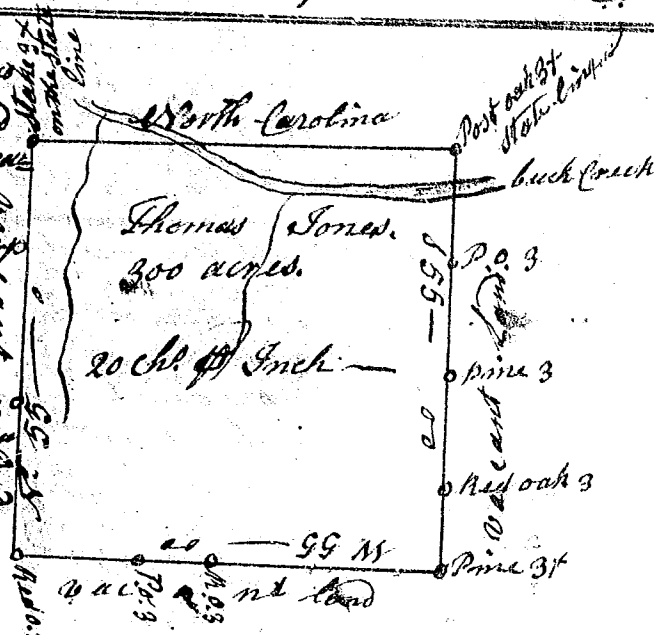 Stake 3x
on the State
line
North Carolina
Post oak 3x
State line
buck Creek
Thomas Jones.
300 acres.
20 chs. Inch —
S 55 — 00
P. O. 3
pine 3
Red oak 3
Pine 3x
vacant land
W 55 — 00
R. o. 3
P o. 3
vacant land
Red o.
N. 55 — 0